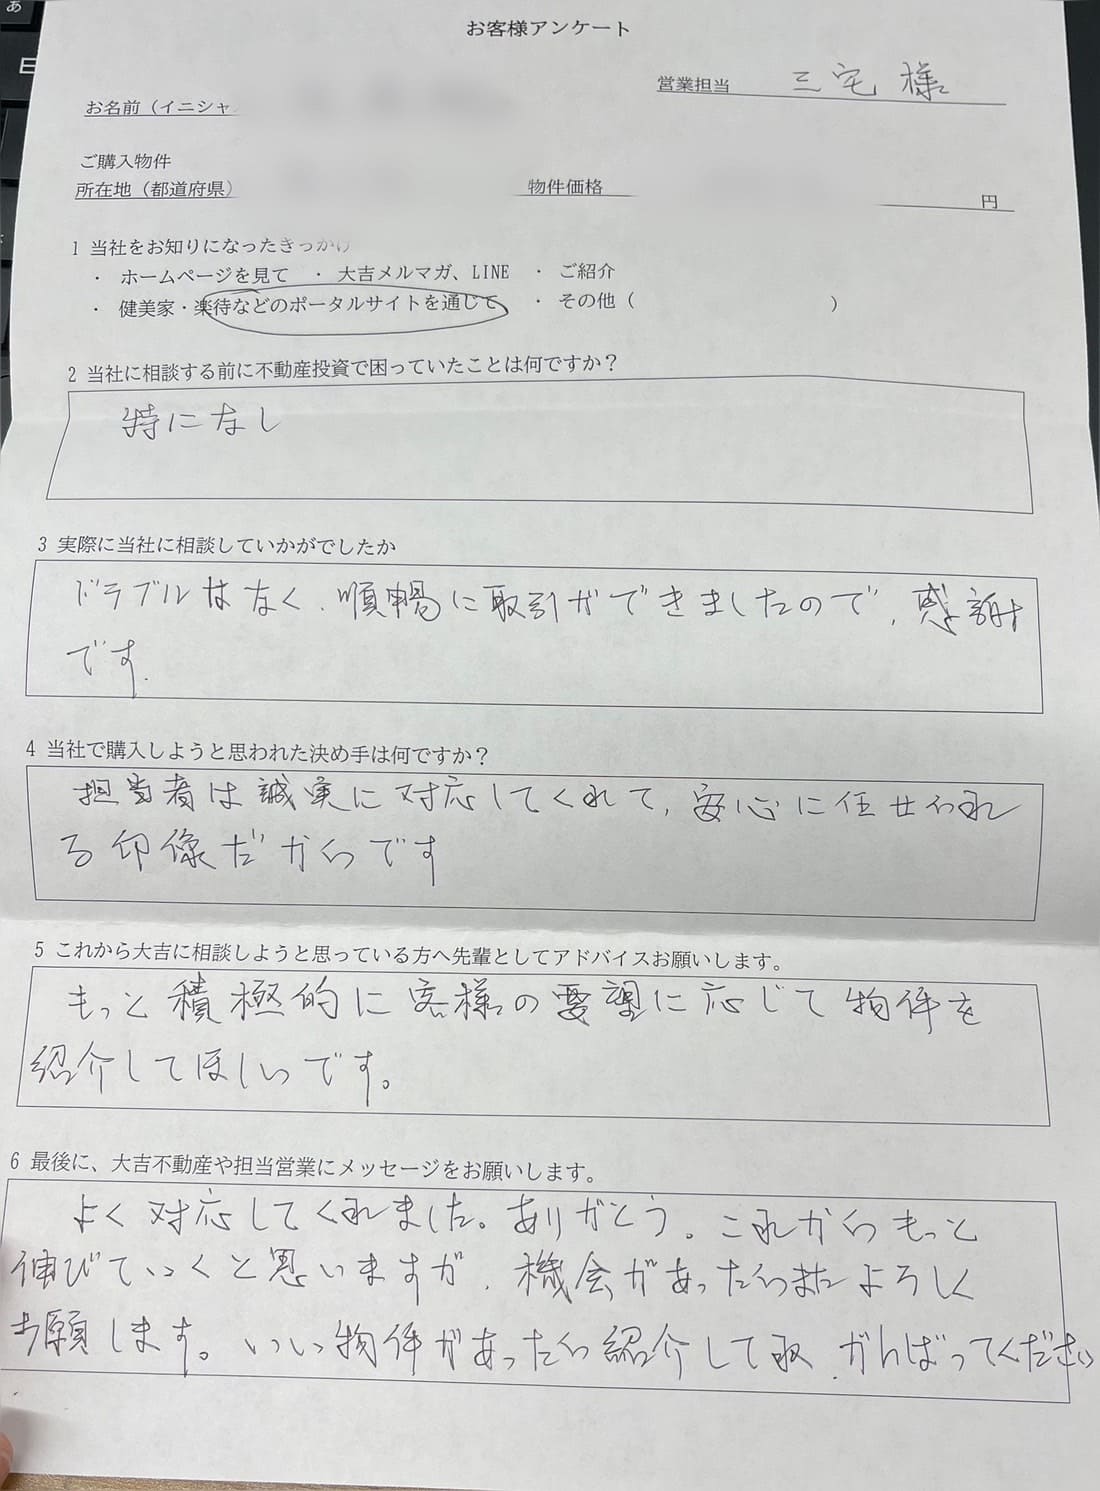 お客様アンケート
営業担当 三宅様
お名前（イニシャ
ご購入物件
所在地（都道府県） 物件価格 円
1 当社をお知りになったきっかけ
・ ホームページを見て ・ 大吉メルマガ、LINE ・ ご紹介
・ 健美家・楽待などのポータルサイトを通じて ・ その他（ ）
2 当社に相談する前に不動産投資で困っていたことは何ですか？
特になし
3 実際に当社に相談していかがでしたか
ドラブルはなく、順暢に取引ができましたので、感謝
です.
4 当社で購入しようと思われた決め手は何ですか？
担当者は誠実に対応してくれて、安心に任せられ
る印像だからです
5 これから大吉に相談しようと思っている方へ先輩としてアドバイスお願いします。
もっと積極的に客様の要望に応じて物件を
紹介してほしいです。
6 最後に、大吉不動産や担当営業にメッセージをお願いします。
よく対応してくれました。ありがとう。これからもっと
伸びていくと思いますが、機会があったらまたよろしく
お願します。いい物件があったら紹介して がんばってください